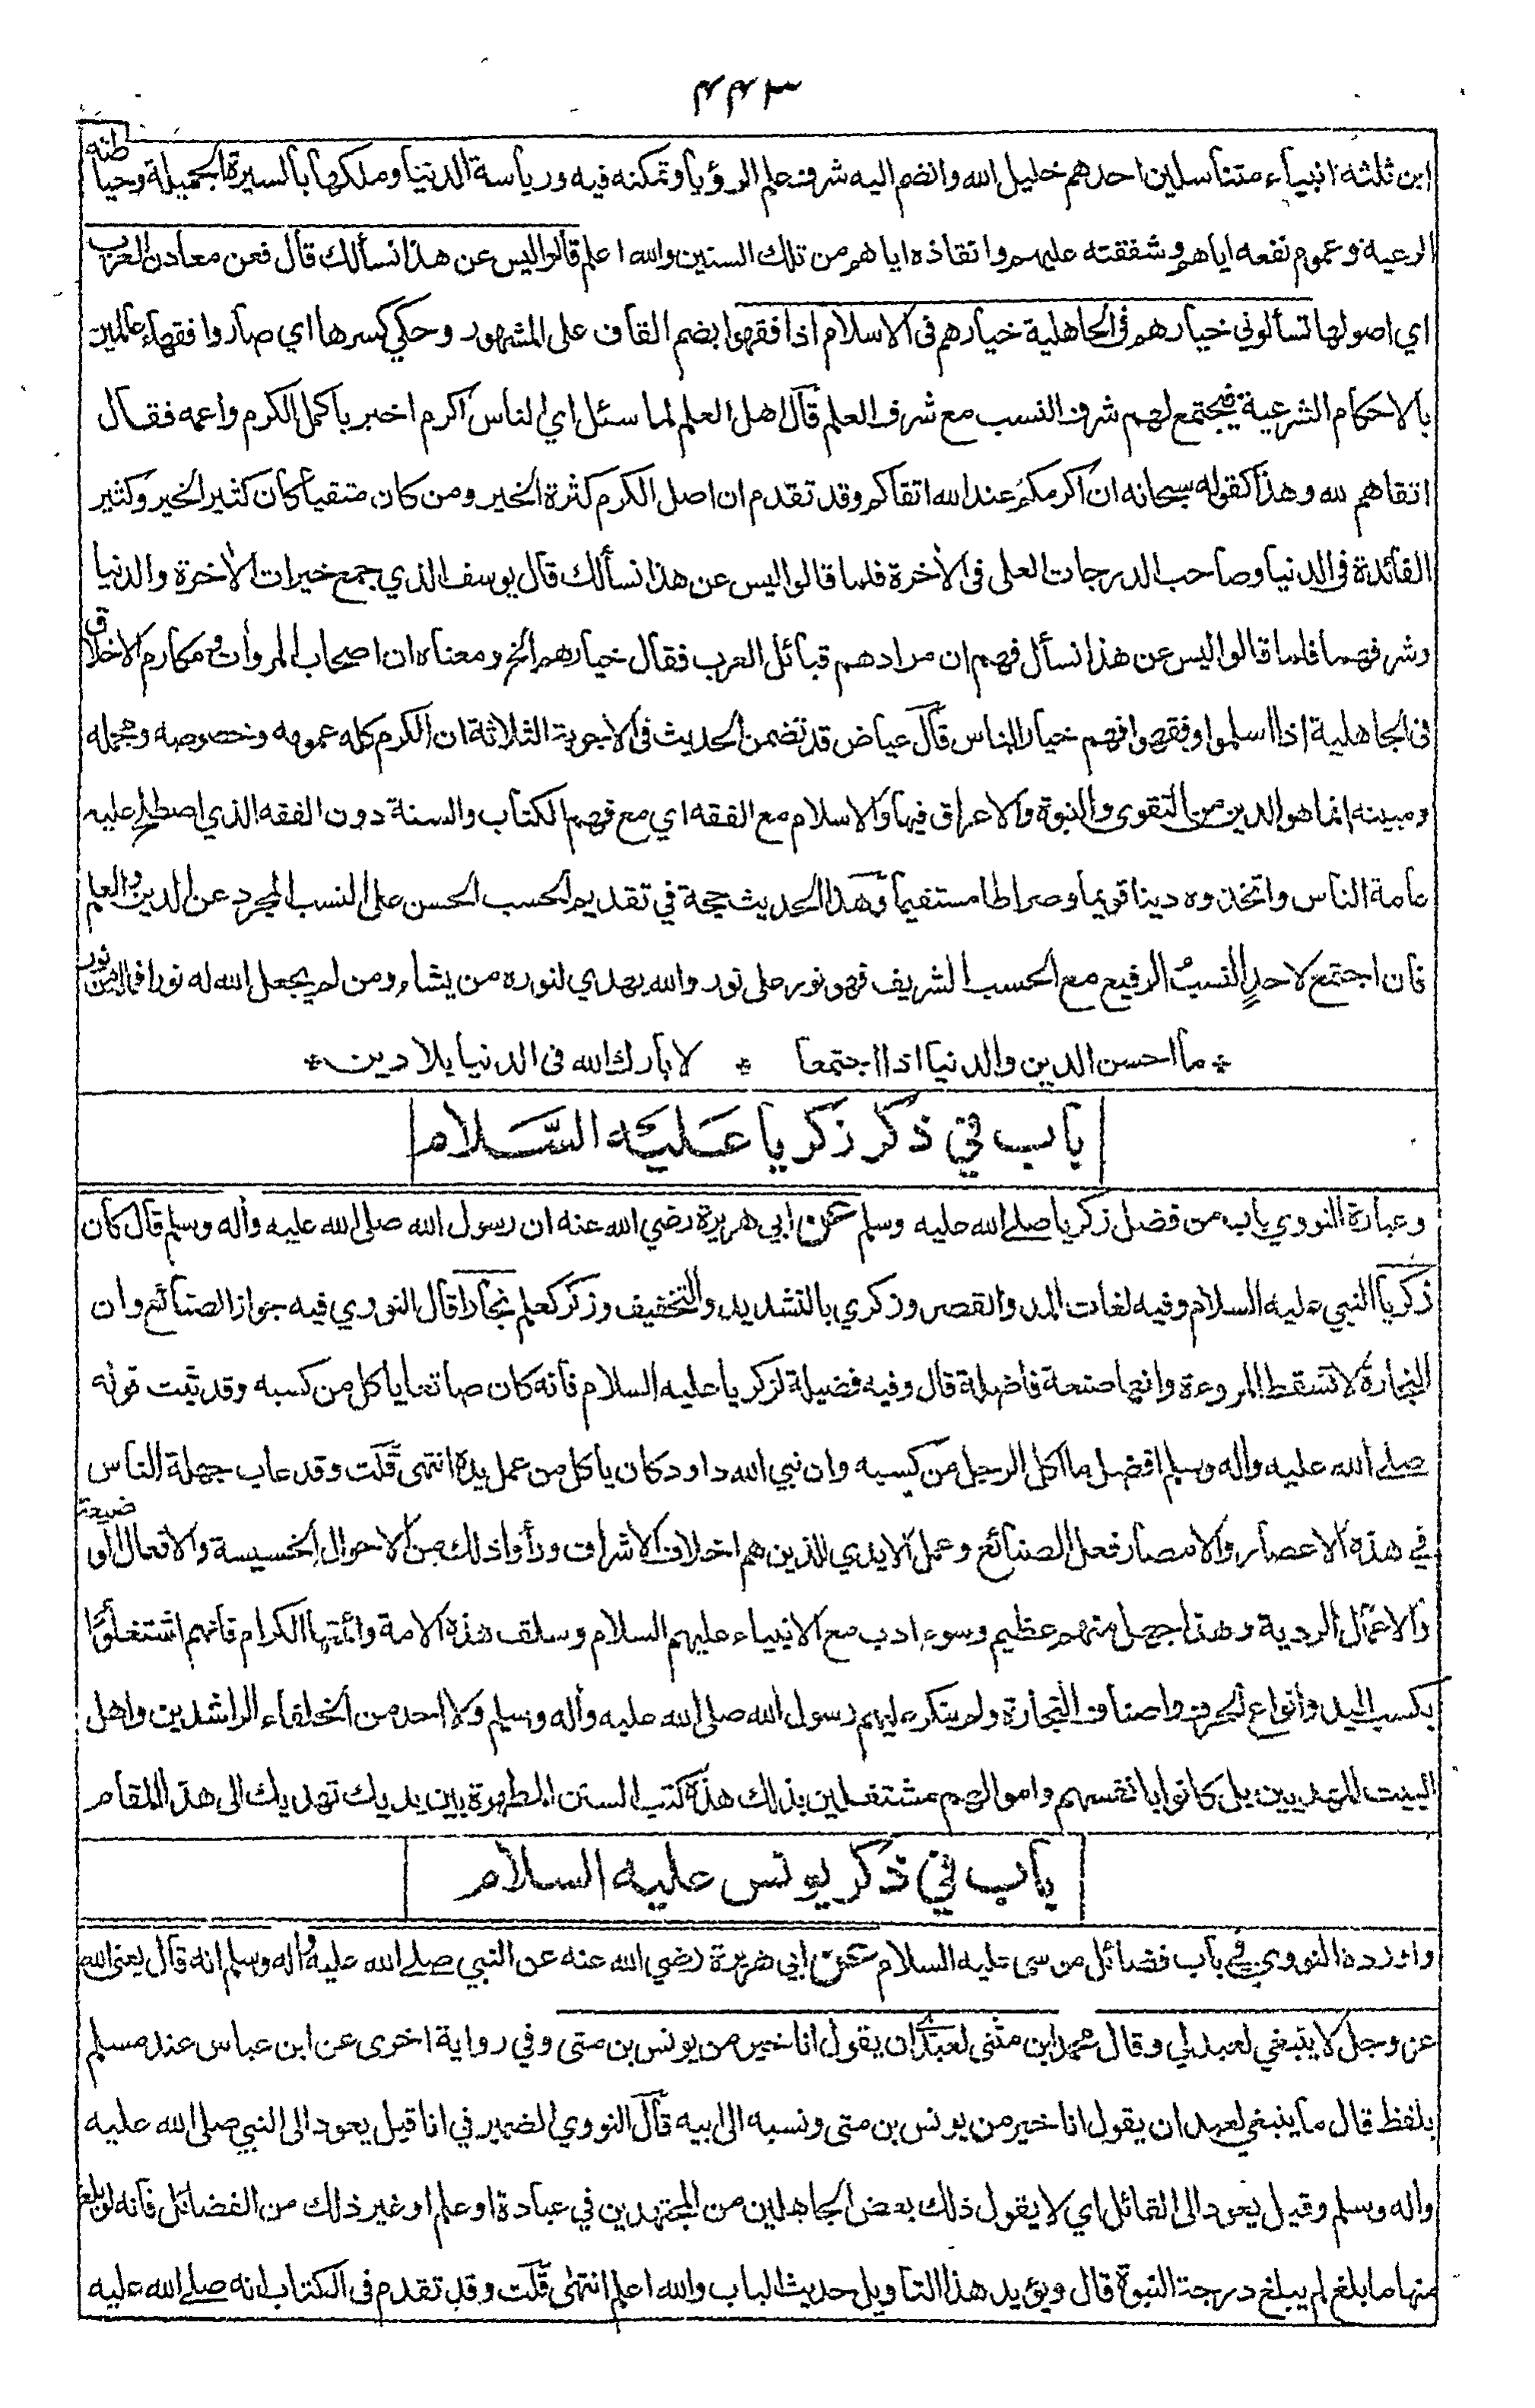 ٤٤٣
ابن ثلثه انبياء متناسلين احدهم خليل الله وانضم اليه شرف علم الرؤيا وتمكنه فيه ورياسة الدنيا وملكها بالسيرة الجميلة وحياطته
الرعية وعموم نفعه اياهم وشفقته عليهم وانقاذه اياهم من تلك السنين والله اعلم قالوا ليس عن هذا نسألك قال فعن معادن العرب
اي اصولها تسألوني خيارهم في الجاهلية خيارهم فى الاسلام اذا فقهوا بضم القاف على المشهور وحكي كسرها اي صاروا فقهاء عالمين
بالاحكام الشرعية فيجتمع لهم شرف النسب مع شرف العلم قال اهل العلم لما سئل اي الناس اكرم اخبر باكمل الكرم واعمه فقال
اتقاهم لله وهذا كقوله سبحانه ان اكرمكم عند الله اتقاكم وقد تقدم ان اصل الكرم كثرة الخير ومن كان متقيا كان كثير الخير وكثير
الفائدة فى الدنيا وصاحب الدرجات العلى فى الأخرة فلما قالوا ليس عن هذا نسألك قال يوسف الذي جمع خيرات الأخرة والدنيا
وشرفهما فلما قالوا ليس عن هذا نسأل فهم ان مرادهم قبائل العرب فقال خيارهم الخ ومعناه ان اصحاب المروأت ومكارم الاخلاق
فى الجاهلية اذا اسلموا وفقهوا فهم خيار الناس قال عياض قد تضمن الحديث فى الاجوبة الثلاثة ان الكرم كله عمومه وخصوصه ومجمله
ومبينه انما هو الدين من التقوى والنبوة والاعراق فيها والاسلام مع الفقه اي مع فهم الكتاب والسنة دون الفقه الذي اصطلح عليه
عامة الناس واتخذوه دينا قويما وصراطا مستقيما وهذا الحديث حجة في تقديم الحسب الحسن على النسب المجرد عن الدين والعلم
فان اجتمع لاحد النسب الرفيع مع الحسب الشريف فهو نور على نور والله يهدي لنوره من يشاء ومن لم يجعل الله له نورا فماله من نور
* ما احسن الدين والدنيا اذا اجتمعا * لا بارك الله فى الدنيا بلا دين *
باب في ذكر زكريا عليه السلام
وعبارة النووي باب من فضل زكريا صلے الله عليه وسلم عن ابي هريرة رضي الله عنه ان رسول الله صلى الله عليه وأله وسلم قال كان
زكريا النبي عليه السلام وفيه لغات المد والقصر وزكري بالتشديد والتخفيف وزكر كعلم نجارا قال النووي فيه جواز الصنائع وان
النجارة لا تسقط المروءة وانها صنعة فاضلة قال وفيه فضيلة لزكريا عليه السلام فانه كان صانعا يأكل من كسبه وقد ثبت قوله
صلے الله عليه واله وسلم افضل ما اكل الرجل من كسبه وان نبي الله داود كان ياكل من عمل يده انتهى قلت وقد عاب جهلة الناس
في هذه الاعصار والامصار فعل الصنائع وعمل الايدي للذين هم اخلاف الاشراف ورأوا ذلك من الاحوال الخسيسة والافعال الوضيعة
والاعمال الردية وهذا جهل منهم عظيم وسوء ادب مع الانبياء عليهم السلام وسلف هذه الامة وائمتها الكرام فانهم اشتغلوا
بكسب اليد وانواع الحرف واصناف التجارة ولم ينكر عليهم رسول الله صلى الله عليه وأله وسلم ولا احد من الخلفاء الراشدين واهل
البيت المهديين بل كانوا بانفسهم واموالهم مشتغلين بذلك هذه كتب السنن المطهرة بين يديك تهديك الى هذا المقام
باب في ذكر يونس عليه السلام
واورده النووي في باب فضائل موسى عليه السلام عن ابي هريرة رضي الله عنه عن النبي صلے الله عليه واله وسلم انه قال يعنى الله
عز وجل لا ينبغي لعبد لي وقال محمد ابن مثنى لعبدي ان يقول انا خير من يونس بن متى وفي رواية اخرى عن ابن عباس عند مسلم
بلفظ قال ما ينبغي لعبد ان يقول انا خير من يونس بن متى ونسبه الى ابيه قال النووي الضمير في انا قيل يعود الى النبي صلى الله عليه
واله وسلم وقيل يعود الى القائل اي لا يقول ذلك بعض الجاهلين من المجتهدين في عبادة او علم او غير ذلك من الفضائل فانه لو بلغ
منها ما بلغ لم يبلغ درجة النبوة قال ويؤيد هذا التاويل حديث الباب والله اعلم انتهى قلت وقد تقدم فى الكتاب انه صلے الله عليه